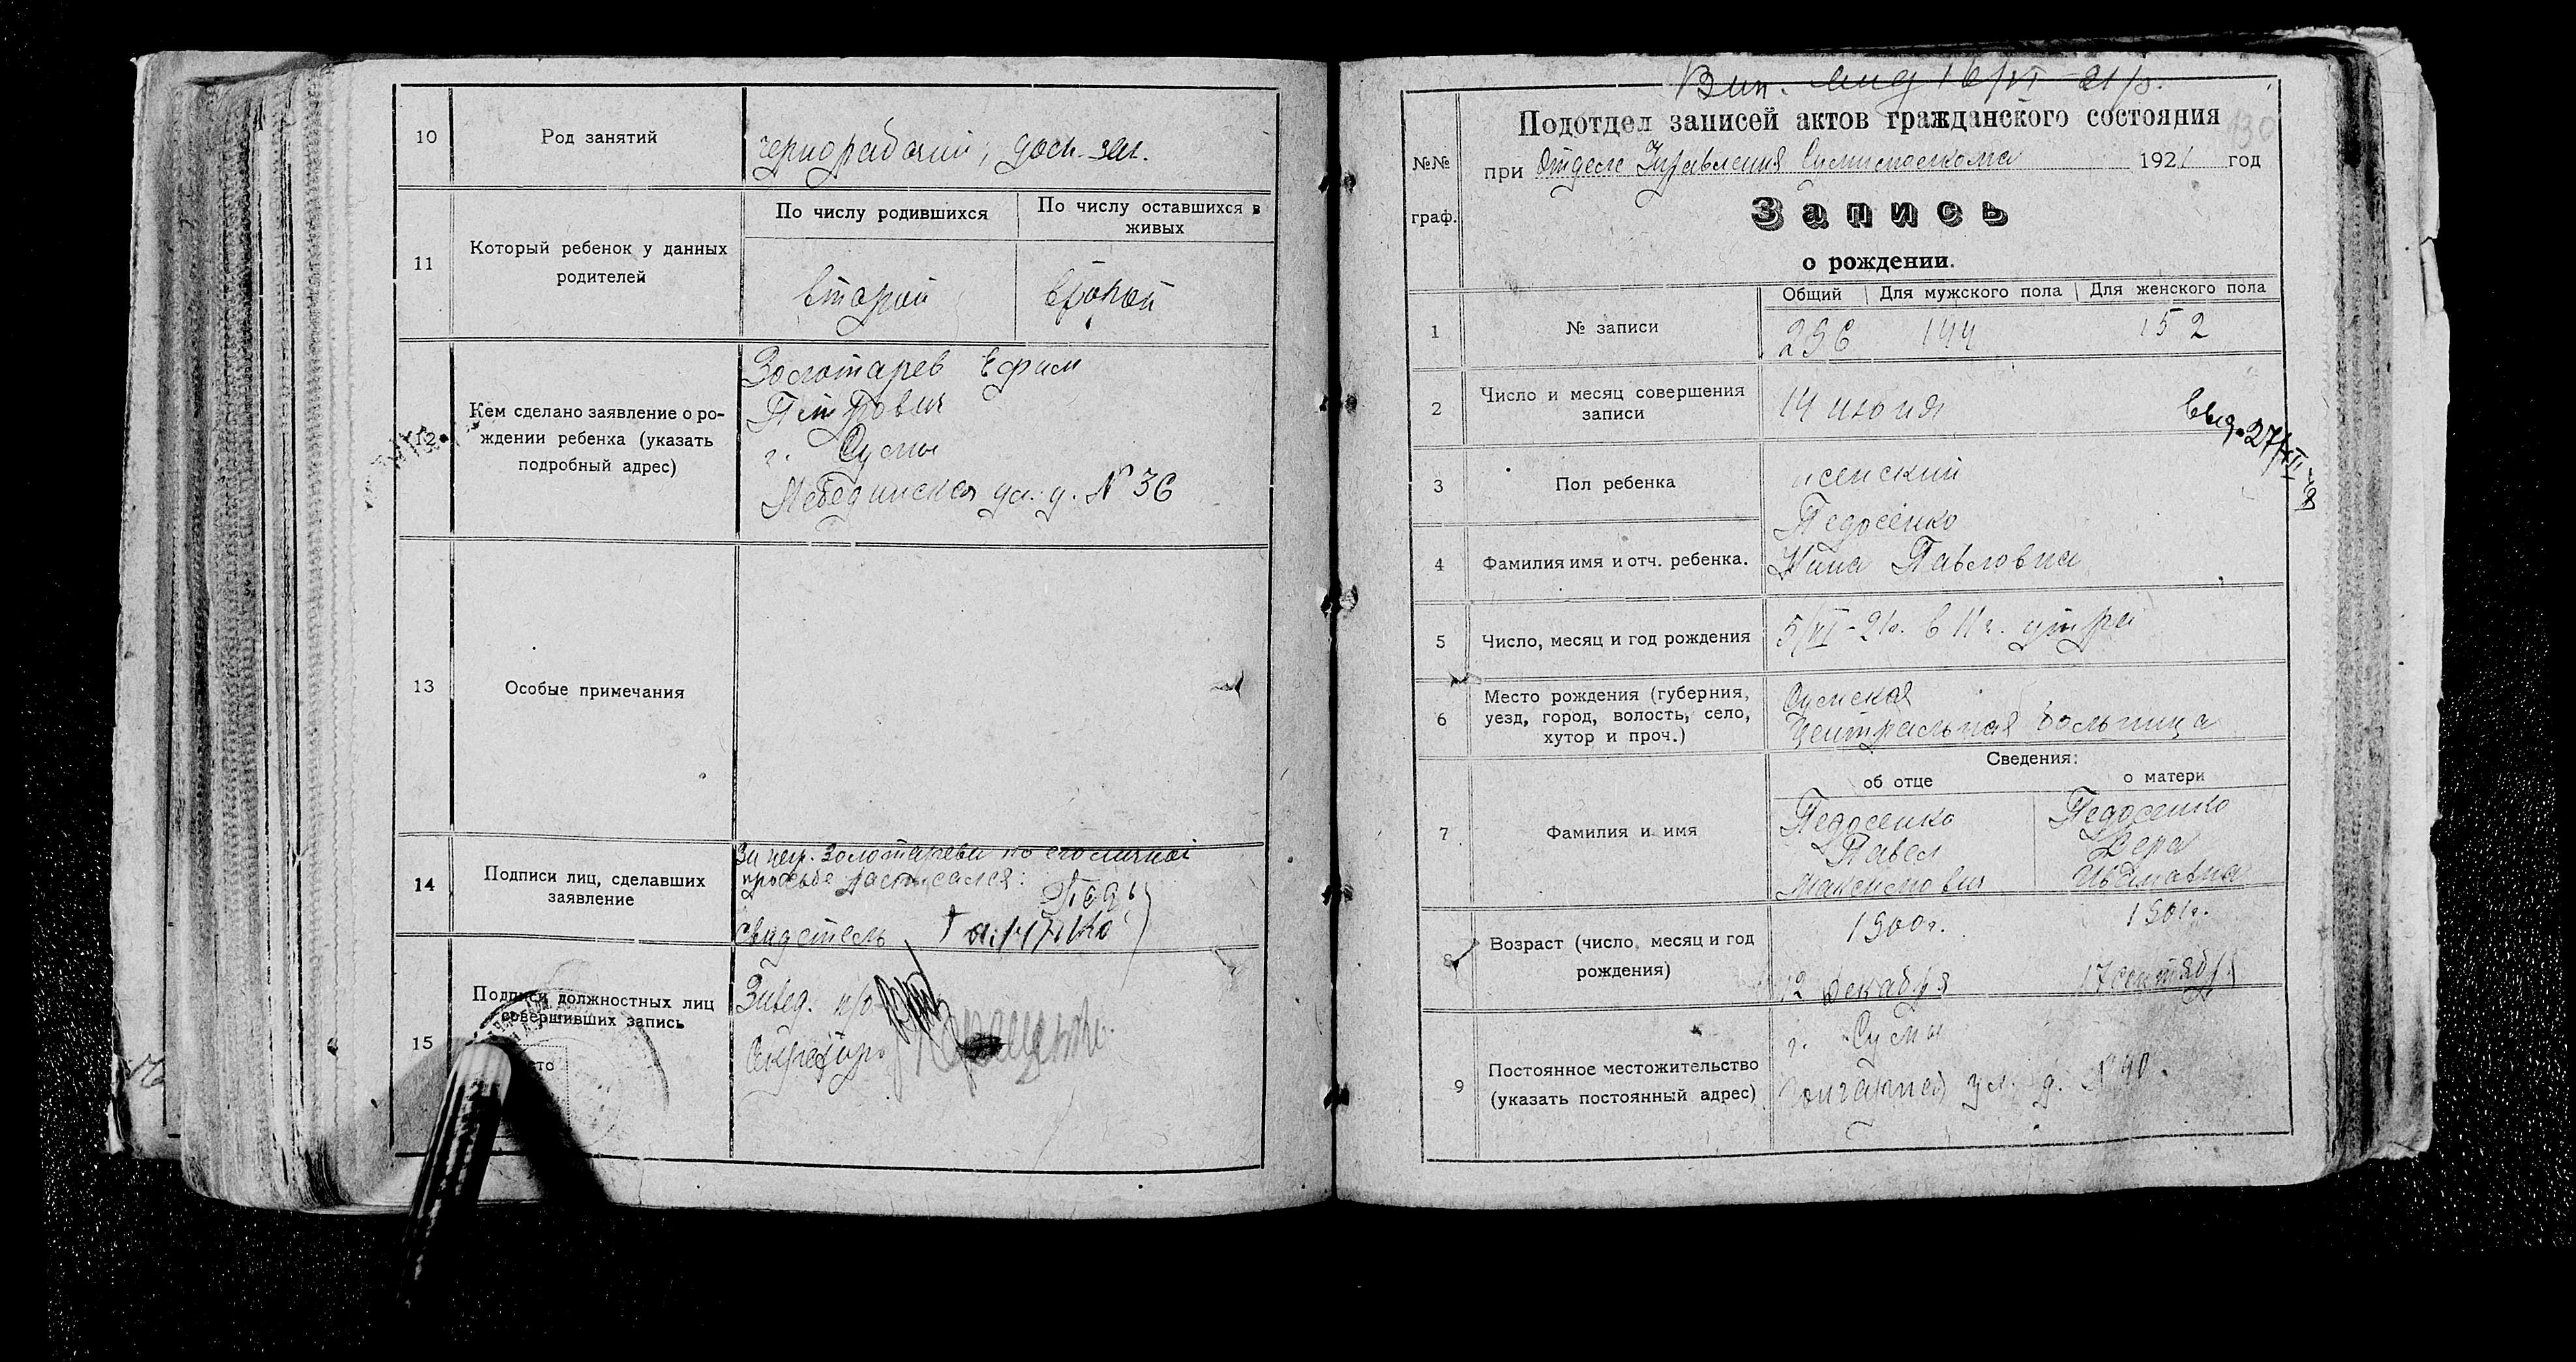 10
Род занятий
чернорабочий, дом. хоз.
11
Который ребенок у данных
родителей
По числу родившихся
По числу оставшихся в
живых
второй
второй
12
Кем сделано заявление о ро-
ждении ребенка (указать
подробный адрес)
Золотарев Ефим
Петрович
г. Сумы
Лебединская ул. д. № 36
13
Особые примечания
14
Подписи лиц, сделавших
заявление
За негр. Золотарева по его личной
просьбе расписался:
свидетель
15
Подписи должностных лиц
совершивших запись
Завед. п/о
Секретарь
Вип. 16/VI 21 р.
Подотдел записей актов гражданского состояния
№№
граф.
при Отделе Управления Сумисполкома 1921 год
Запись
о рождении.
Общий
Для мужского пола
Для женского пола
1
№ записи
296
144
152
2
Число и месяц совершения
записи
14 июня
3
Пол ребенка
женский
4
Фамилия имя и отч. ребенка.
Педосенко
Нина Павловна
5
Число, месяц и год рождения
5/VI-21г. в 11 ч. утра
6
Место рождения (губерния,
уезд, город, волость, село,
хутор и проч.)
Сумская
Центральная больница
Сведения:
об отце
о матери
7
Фамилия и имя
Педосенко
Павел
Максимович
Педосенко
Вера
Ивановна
8
Возраст (число, месяц и год
рождения)
1900г.
12 декабря
1901г.
17 сентября
9
Постоянное местожительство
(указать постоянный адрес)
г. Сумы
ул. д. № 40.